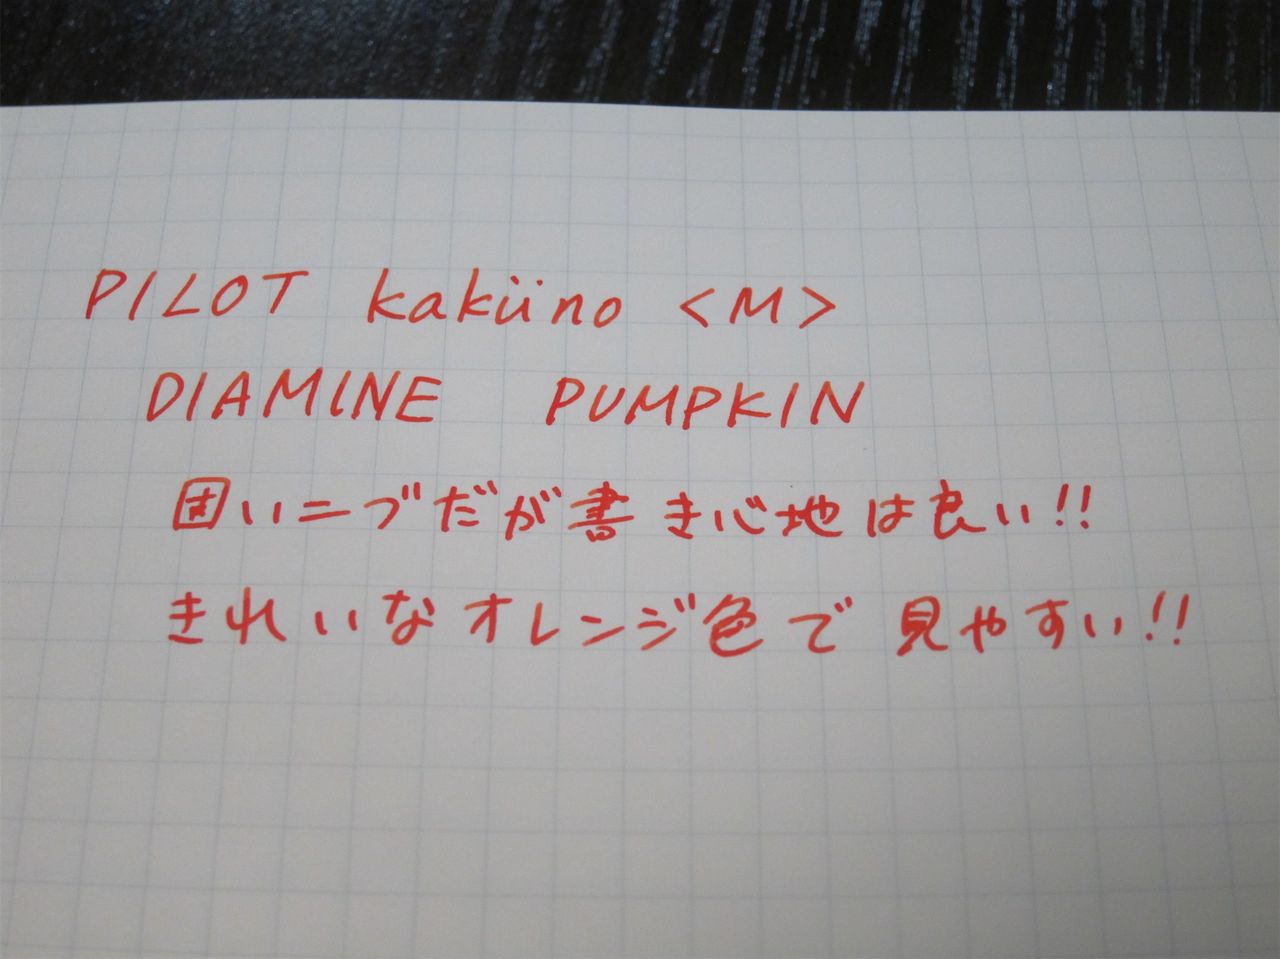 PILOT kaküno <M>
DIAMINE PUMPKIN
固いニブだが書き心地は良い!!
きれいなオレンジ色で見やすい!!